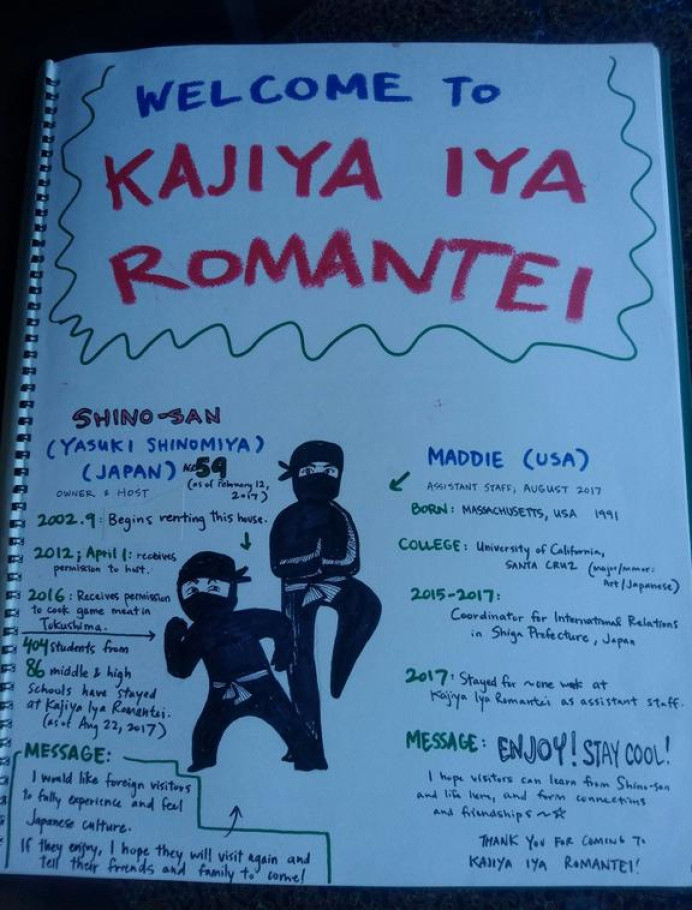 WELCOME TO
KAJIYA IYA
ROMANTEI
SHINO-SAN
(YASUKI SHINOMIYA)
(JAPAN) AGE 59
(as of February 12,
2017)
OWNER & HOST
2002.9: Begins renting this house.
2012; April 1: receives
permission to host.
2016: Receives permission
to cook game meat in
Tokushima.
404 students from
86 middle & high
schools have stayed
at Kajiya Iya Romantei.
(as of Aug 22, 2017)
MESSAGE:
I would like foreign visitors
to fully experience and feel
Japanese culture.
If they enjoy, I hope they will visit again and
tell their friends and family to come!
MADDIE (USA)
ASSISTANT STAFF, AUGUST 2017
BORN: MASSACHUSETTS, USA 1991
COLLEGE: University of California,
SANTA CRUZ (major/minor:
Art/Japanese)
2015-2017:
Coordinator for International Relations
in Shiga Prefecture, Japan
2017: Stayed for ~one week at
Kajiya Iya Romantei as assistant staff.
MESSAGE: ENJOY! STAY COOL!
I hope visitors can learn from Shino-san
and life here, and form connections
and friendships ~☆
THANK YOU FOR COMING TO
KAJIYA IYA ROMANTEI!